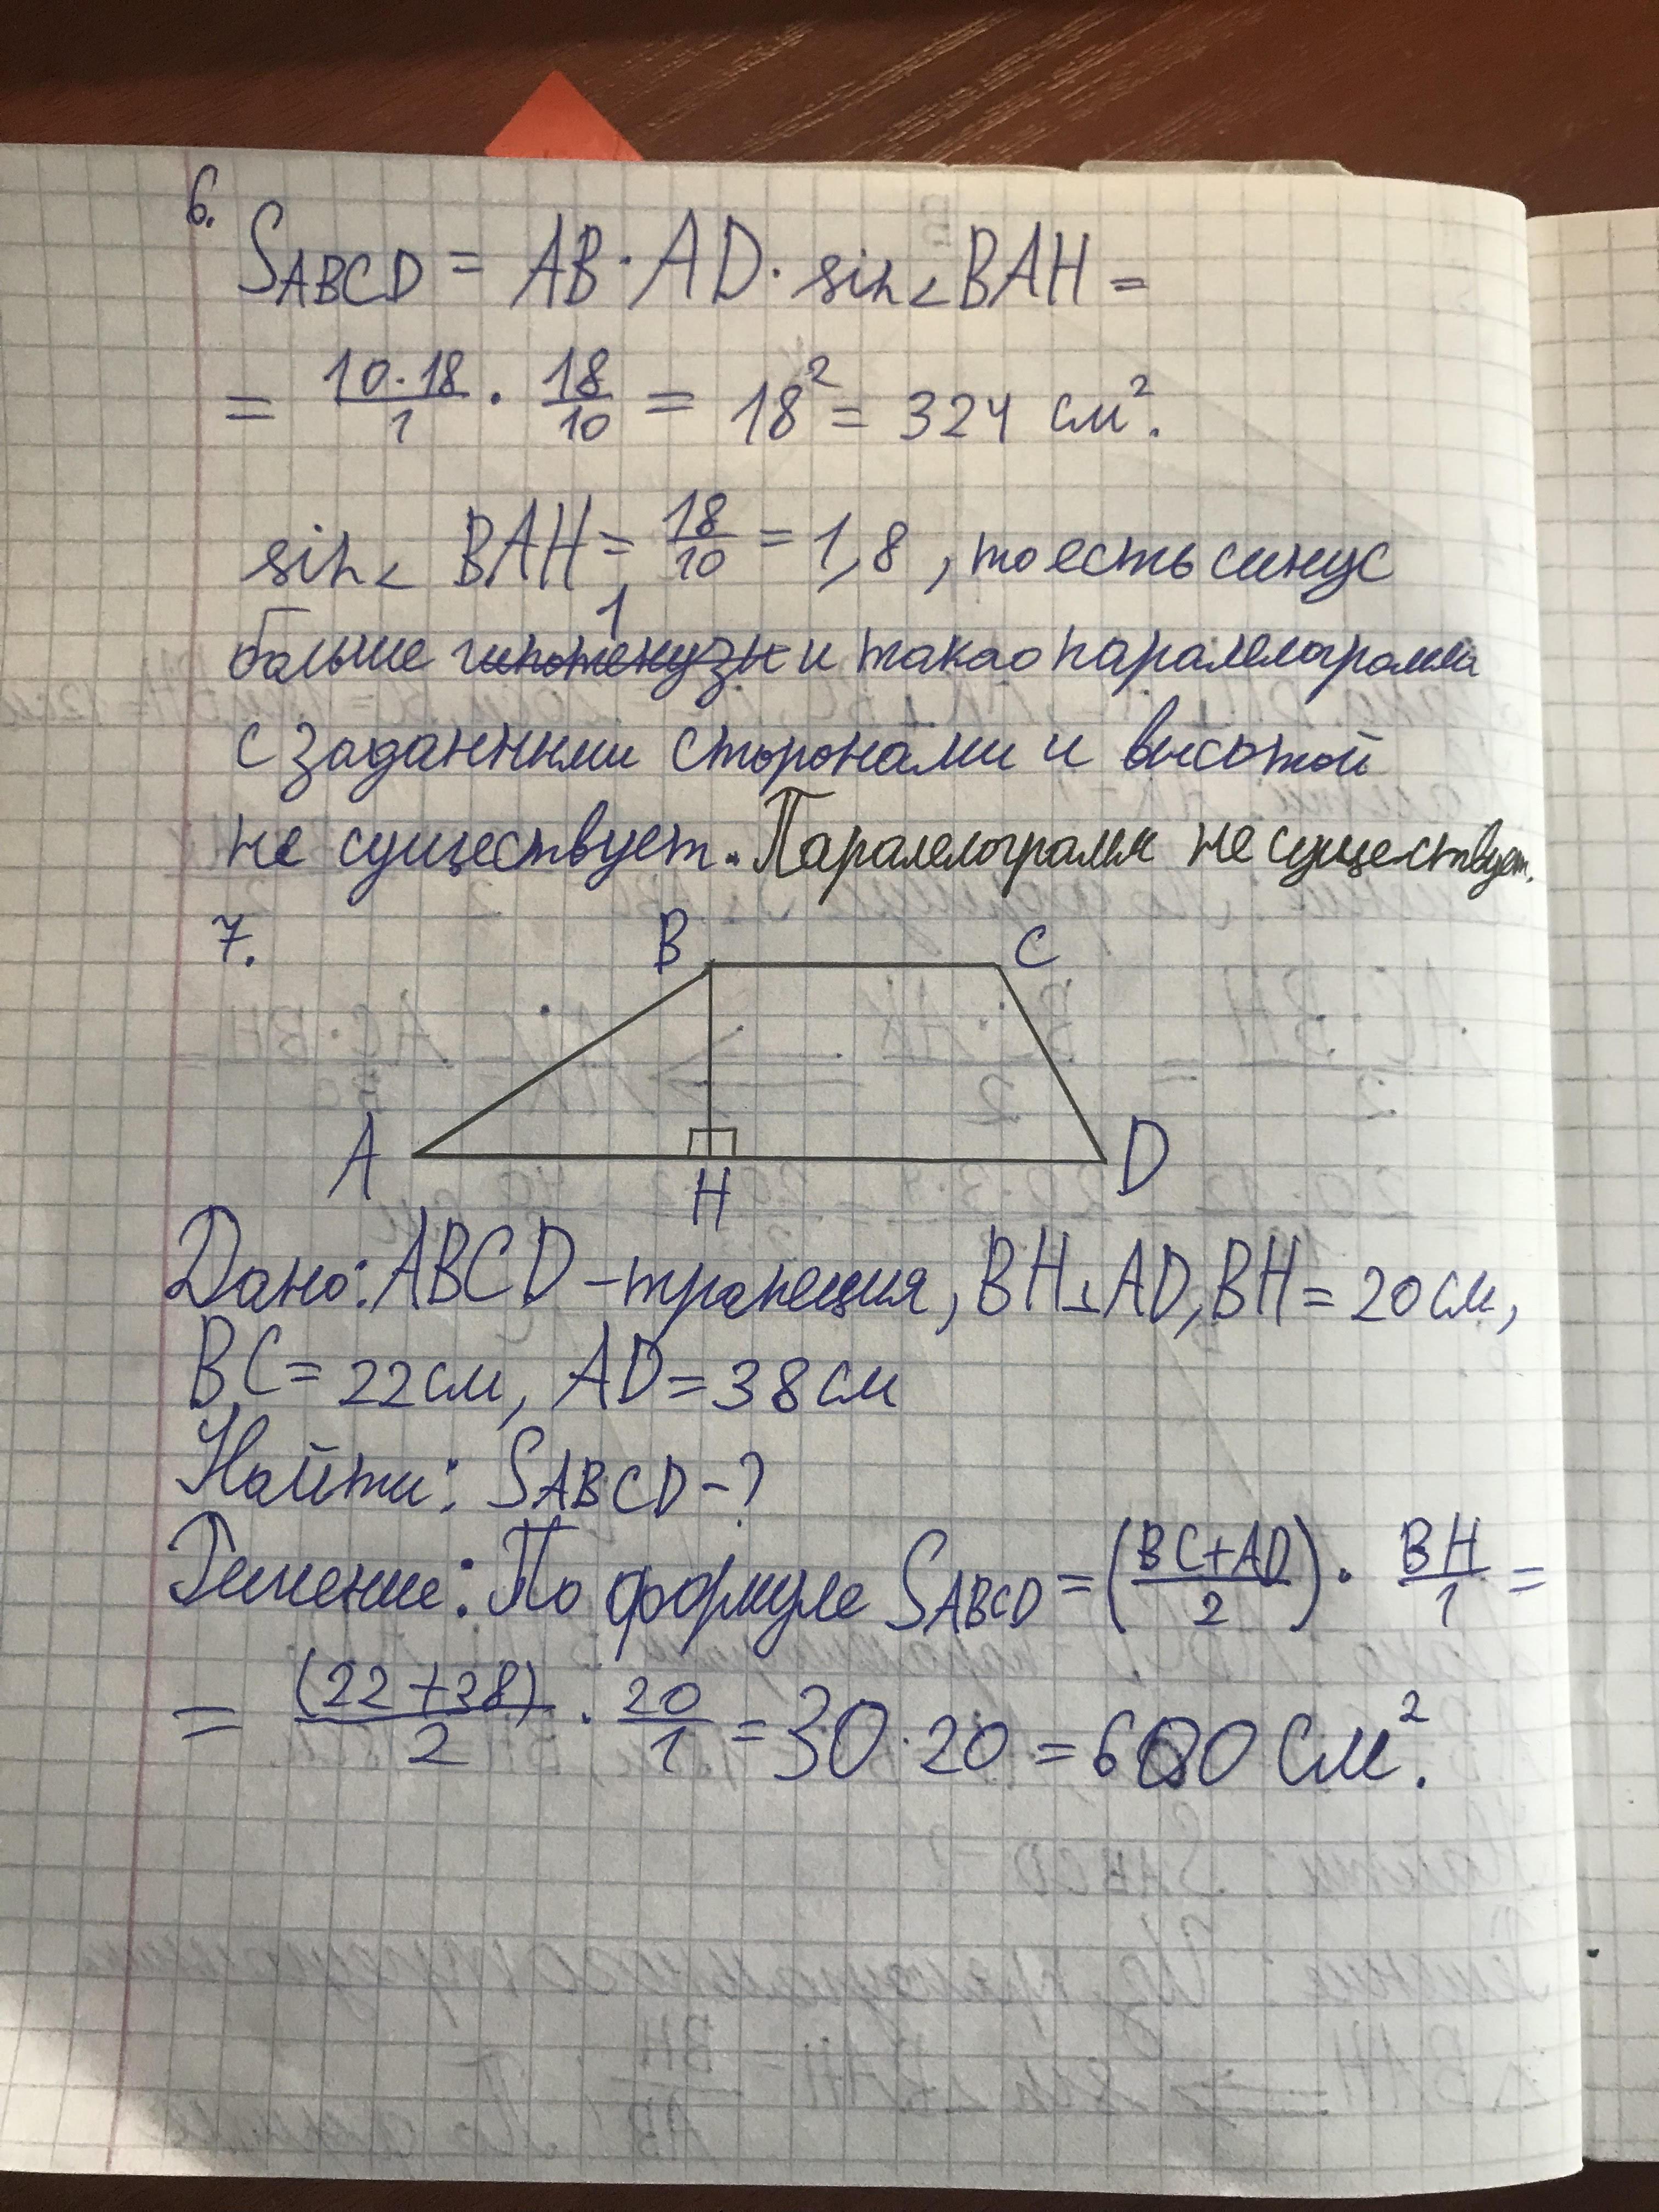 6.
S ABCD = AB · AD · sin∠BAH =
= 10·18/1 · 18/10 = 18² = 324 см².
sin∠ BAH = 18/10 = 1,8, то есть синус
1
больше гипотенузы и такао паралелограмма
с заданными сторонами и высотой
не существует. Паралелограмм не существует.
7.
B C
A H D
Дано: ABCD – трапеция, BH⊥AD, BH = 20 см,
BC = 22 см, AD = 38 см
Найти: S ABCD – ?
Решение: По формуле S ABCD = (BC+AD/2) · BH/1 =
= (22+38)/2 · 20/1 = 30 · 20 = 600 см².